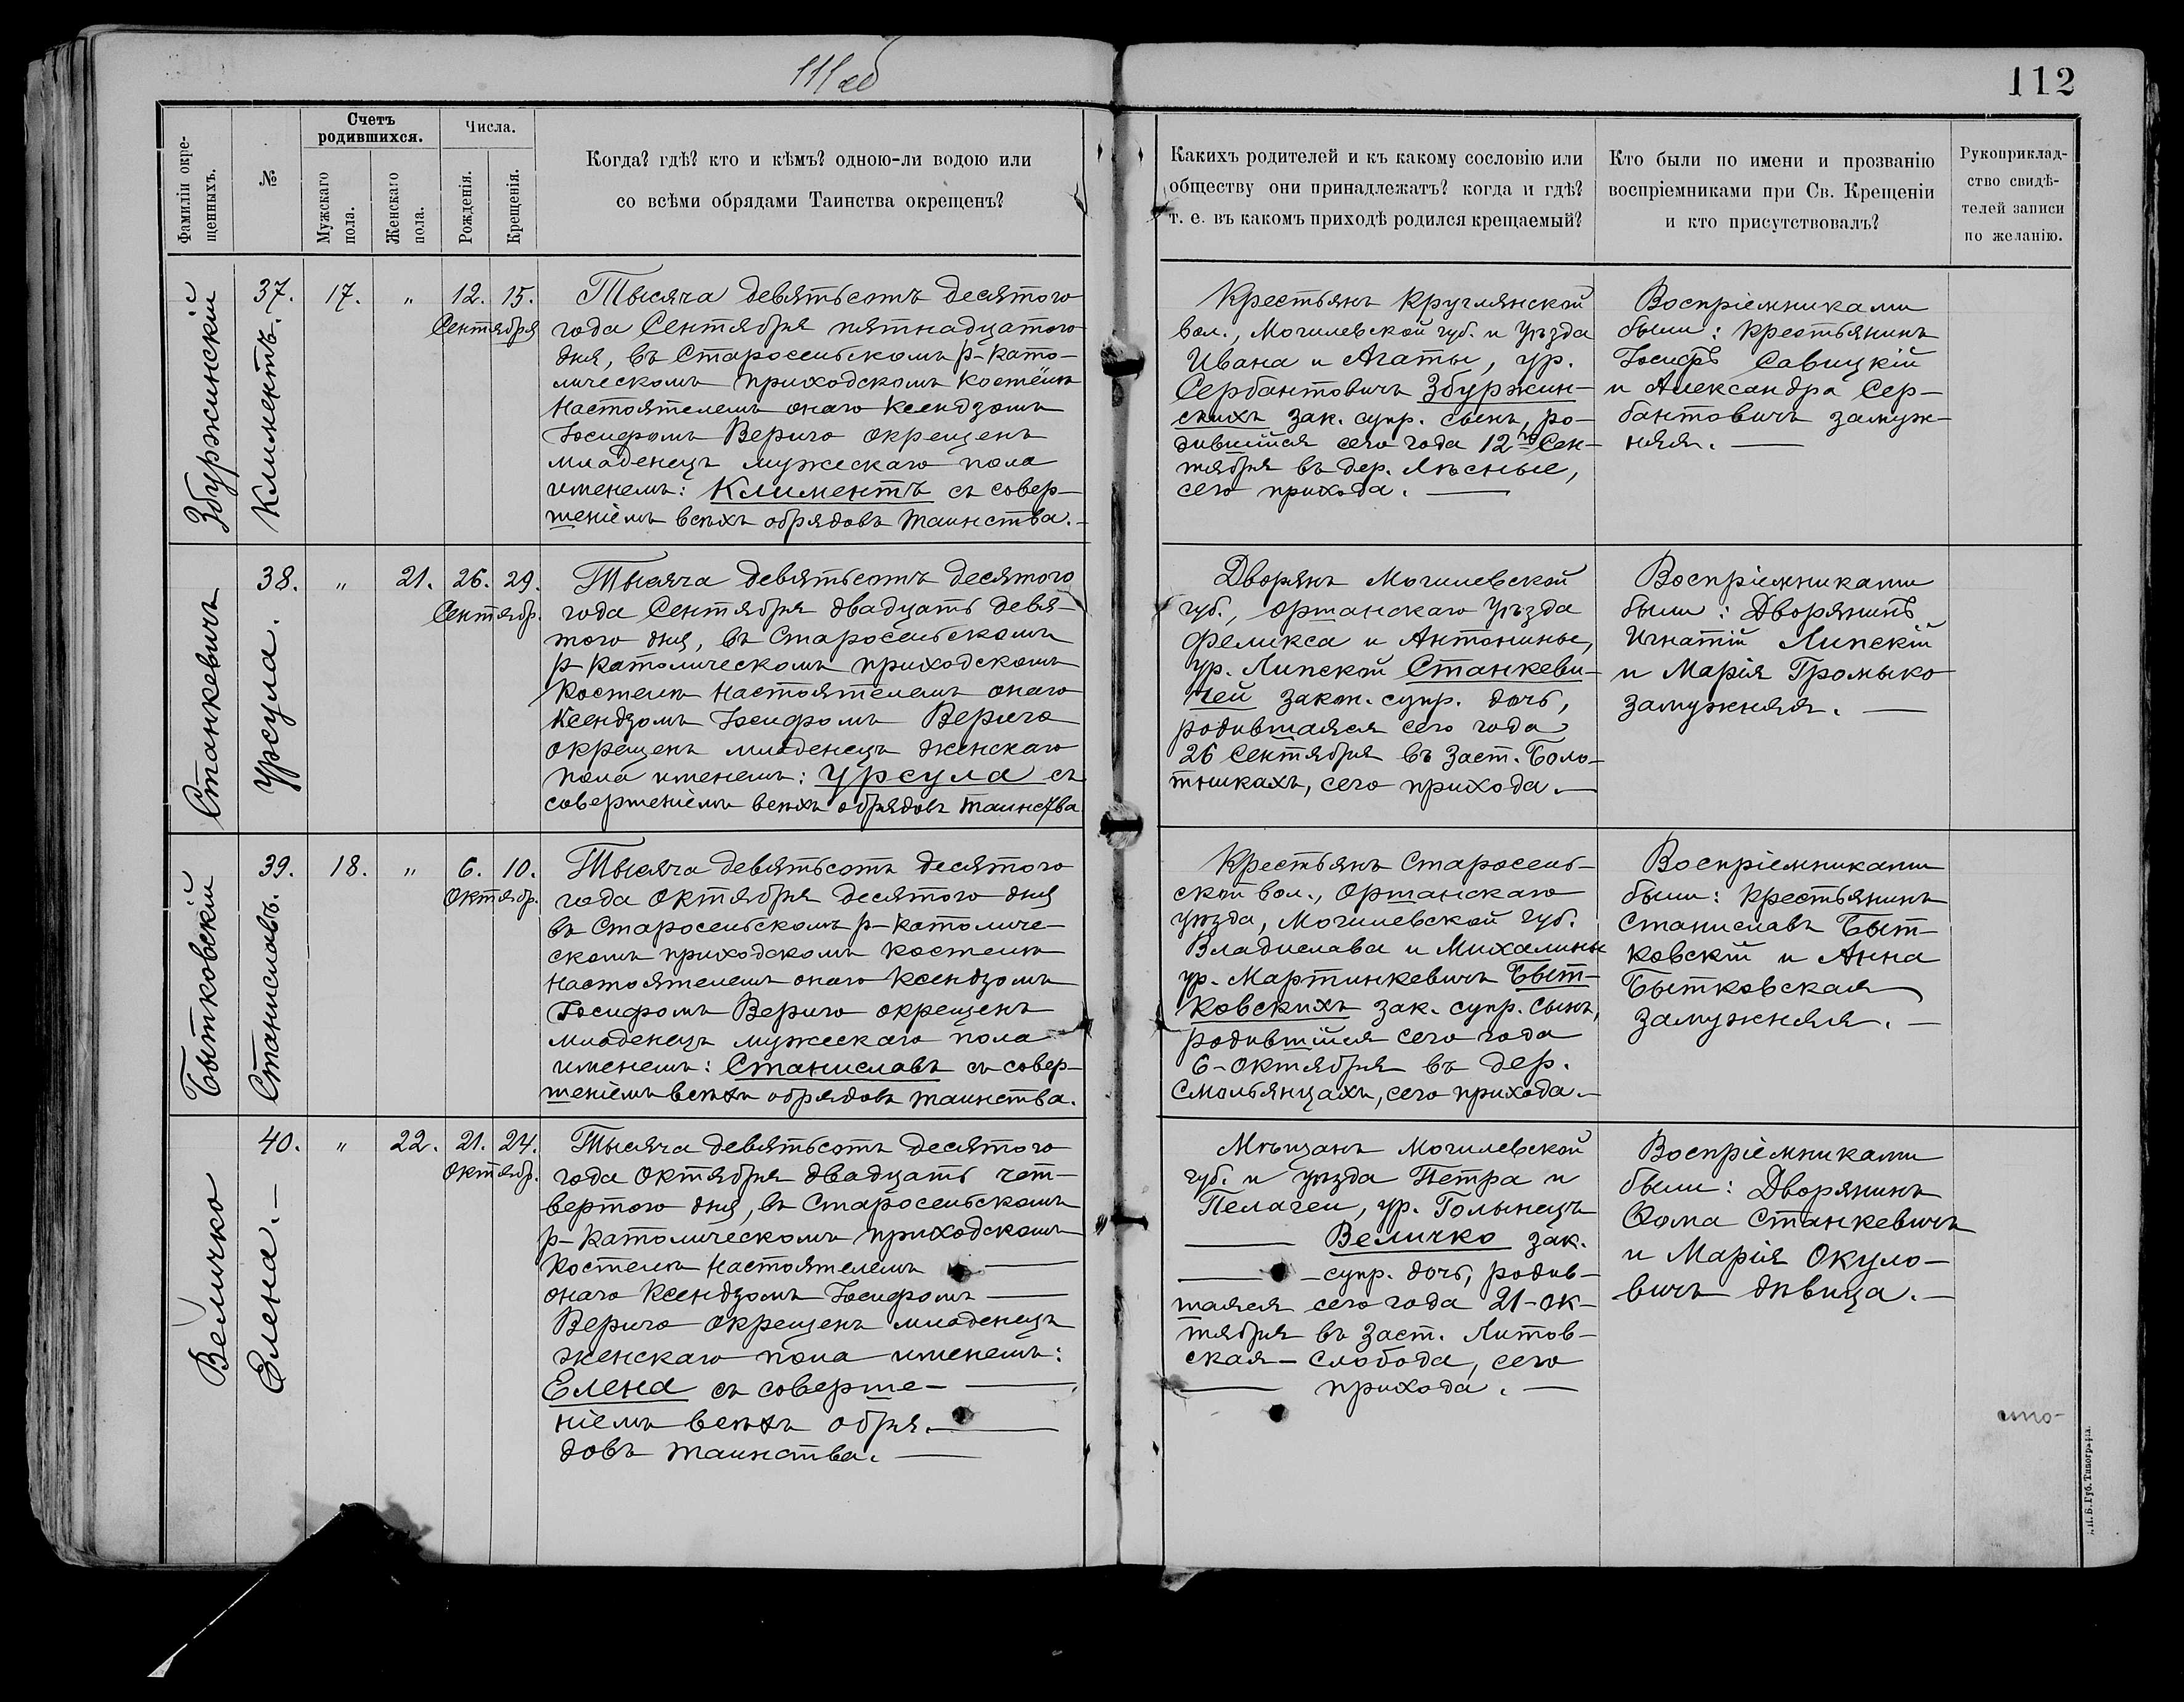 111об
112
Фамиліи окре-
щенныхъ.
№
Счетъ
родившихся.
Мужскаго
пола.
Женскаго
пола.
Числа.
Рожденія.
Крещенія.
Когда? гдѣ? кто и кѣмъ? одною-ли водою или
со всѣми обрядами Таинства окрещенъ?
Какихъ родителей и къ какому сословію или
обществу они принадлежатъ? когда и гдѣ?
т. е. въ какомъ приходѣ родился крещаемый?
Кто были по имени и прозванію
воспріемниками при Св. Крещеніи
и кто присутствовалъ?
Рукоприклад-
ство свидѣ-
телей записи
по желанію.
Збуржинскій
Климентъ.
37.
17.
"
12. 15.
Сентября
Тысяча девятьсотъ десятого
года Сентября пятнадцатого
дня, въ Старосельскомъ р-като-
лическомъ приходскомъ костёлѣ
Настоятелемъ онаго Ксендзомъ
Іосифомъ Вериго окрещенъ
младенецъ мужескаго пола
именемъ: Климентъ съ совер-
шеніемъ всѣхъ обрядовъ таинства.-
Крестьянъ Круглянской
вол., Могилевской губ. и уѣзда
Ивана и Агаты, ур.
Сербантовичъ Збуржин-
скихъ зак. супр. сынъ, ро-
дившійся сего года 12го Сен-
тября въ дер. Лѣсные,
сего прихода. —
Воспріемниками
были: крестьянинъ
Іосифъ Савицкій
и Александра Сер-
бантовичъ замуж-
няя. —
Станкевичъ
Урсула.
38.
"
21.
26. 29.
Сентябр.
Тысяча девятьсотъ десятого
года Сентября двадцать девя-
того дня, въ Старосельскомъ
р-католическомъ приходскомъ
костелѣ настоятелемъ онаго
Ксендзомъ Іосифомъ Вериго
окрещенъ младенецъ женскаго
пола именемъ: Урсула съ
совершеніемъ всѣхъ обрядовъ таинства
Дворянъ Могилевской
губ., Оршанскаго уѣзда
Феликса и Антонины,
ур. Липской Станкеви-
чей закон. супр. дочь,
родившаяся сего года
26 Сентября въ заст. Боло-
тникахъ, сего прихода. —
Воспріемниками
были: Дворянинъ
Игнатій Липскій
и Марія Громыко
замужняя. —
Бытковскій
Станиславъ.
39.
18.
"
6. 10.
Октябр.
Тысяча девятьсотъ десятого
года Октября десятого дня
въ Старосельскомъ р-католиче-
скомъ приходскомъ костелѣ
настоятелемъ онаго Ксендзомъ
Іосифомъ Вериго окрещенъ
младенецъ мужескаго пола
именемъ: Станиславъ съ совер-
шеніемъ всѣхъ обрядовъ таинства.
Крестьянъ Старосель-
ской вол., Оршанскаго
уѣзда, Могилевской губ.
Владислава и Михалины
ур. Мартинкевичъ Быт-
ковскихъ зак. супр. сынъ,
родившійся сего года
6-Октября въ дер.
Смольянцахъ, сего прихода.-
Воспріемниками
были: крестьянинъ
Станиславъ Быт-
ковскій и Анна
Бытковская
замужняя. —
Величко
Елена.—
40.
"
22.
21. 24.
Октябр.
Тысяча девятьсотъ десятого
года Октября двадцать чет-
вертого дня, въ Старосельскомъ
р-католическомъ приходскомъ
костелѣ настоятелемъ —
онаго Ксендзомъ Іосифомъ —
Вериго окрещенъ младенецъ
женскаго пола именемъ:
Елена съ соверше- —
ніемъ всѣхъ обря- —
довъ таинства. —
Мѣщанъ Могилевской
губ. и уѣзда Петра и
Пелагеи, ур. Голынецъ
— Величко зак.
— супр. дочь, родив-
шаяся сего года 21-ок-
тября въ заст. Литов-
ская-слобода, сего
— прихода. —
Воспріемниками
были: Дворянинъ
Ѳома Станкевичъ
и Марія Окуло-
вичъ дѣвица. —